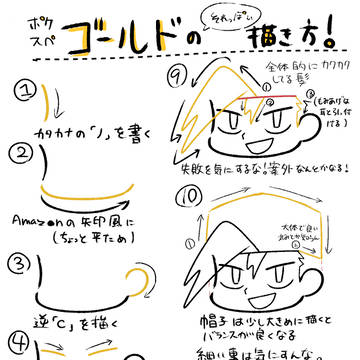 ポケスペ ゴールドの それっぽい 描き方!
①
カタカナの「ノ」を書く
②
Amazonの矢印風に
(ちょっと平ため)
③
逆「C」を描く
④
⑨
全体的にカクカク
してる髪
①
②
(もみあげは
耳と引っ付
ける)
失敗を気にするな!案外なんとかなる!
⑩
大体で良い
帽子は少し大きめに描くと
バランスが良くなる
細い事は気にすんな